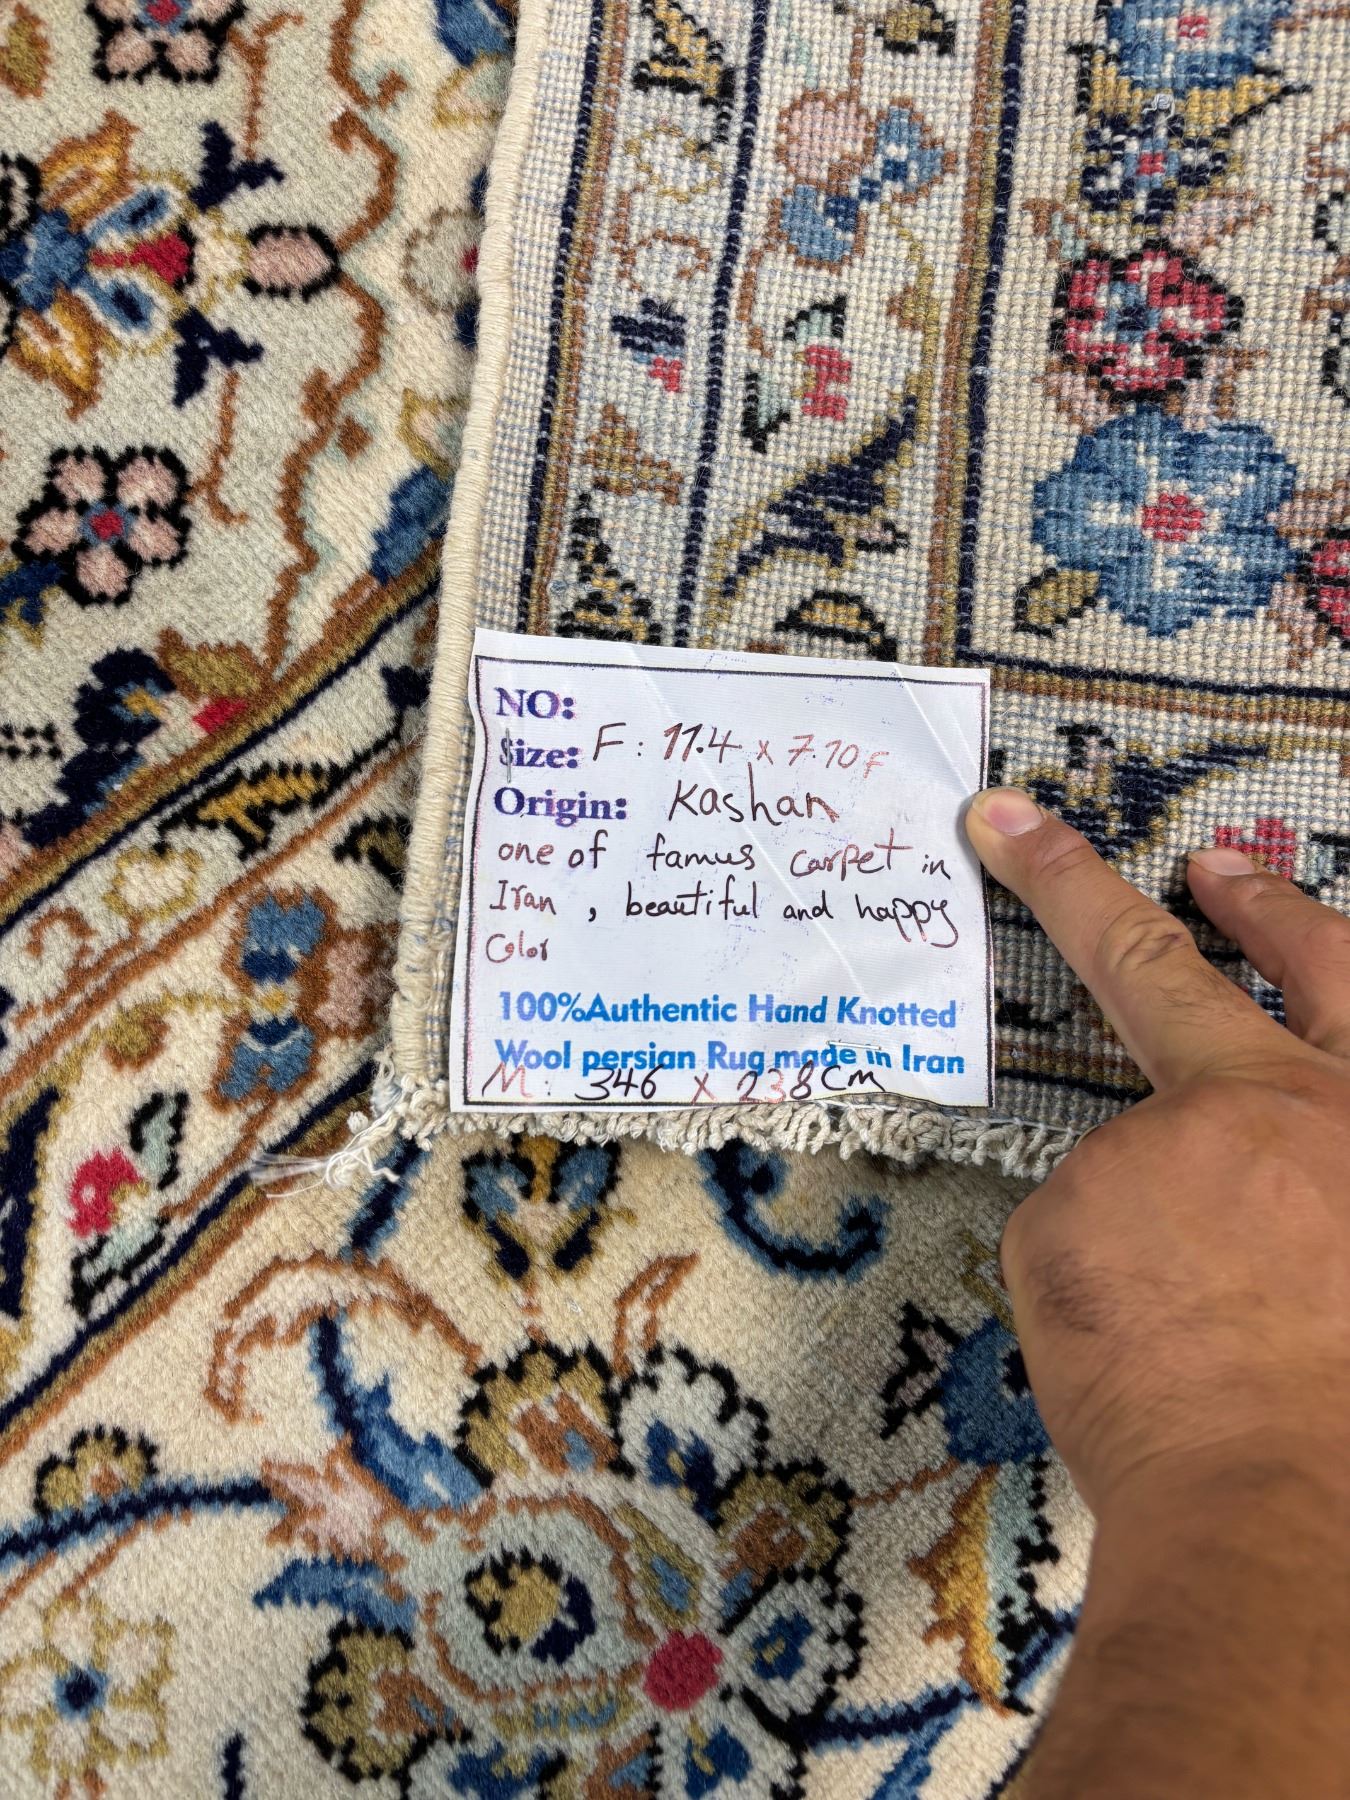 NO:
Size: F: 11.4 x 7.10 F
Origin: Kashan
one of famus carpet in
Iran , beautiful and happy
Color
100%Authentic Hand Knotted
Wool persian Rug made in Iran
M: 346 x 238 cm